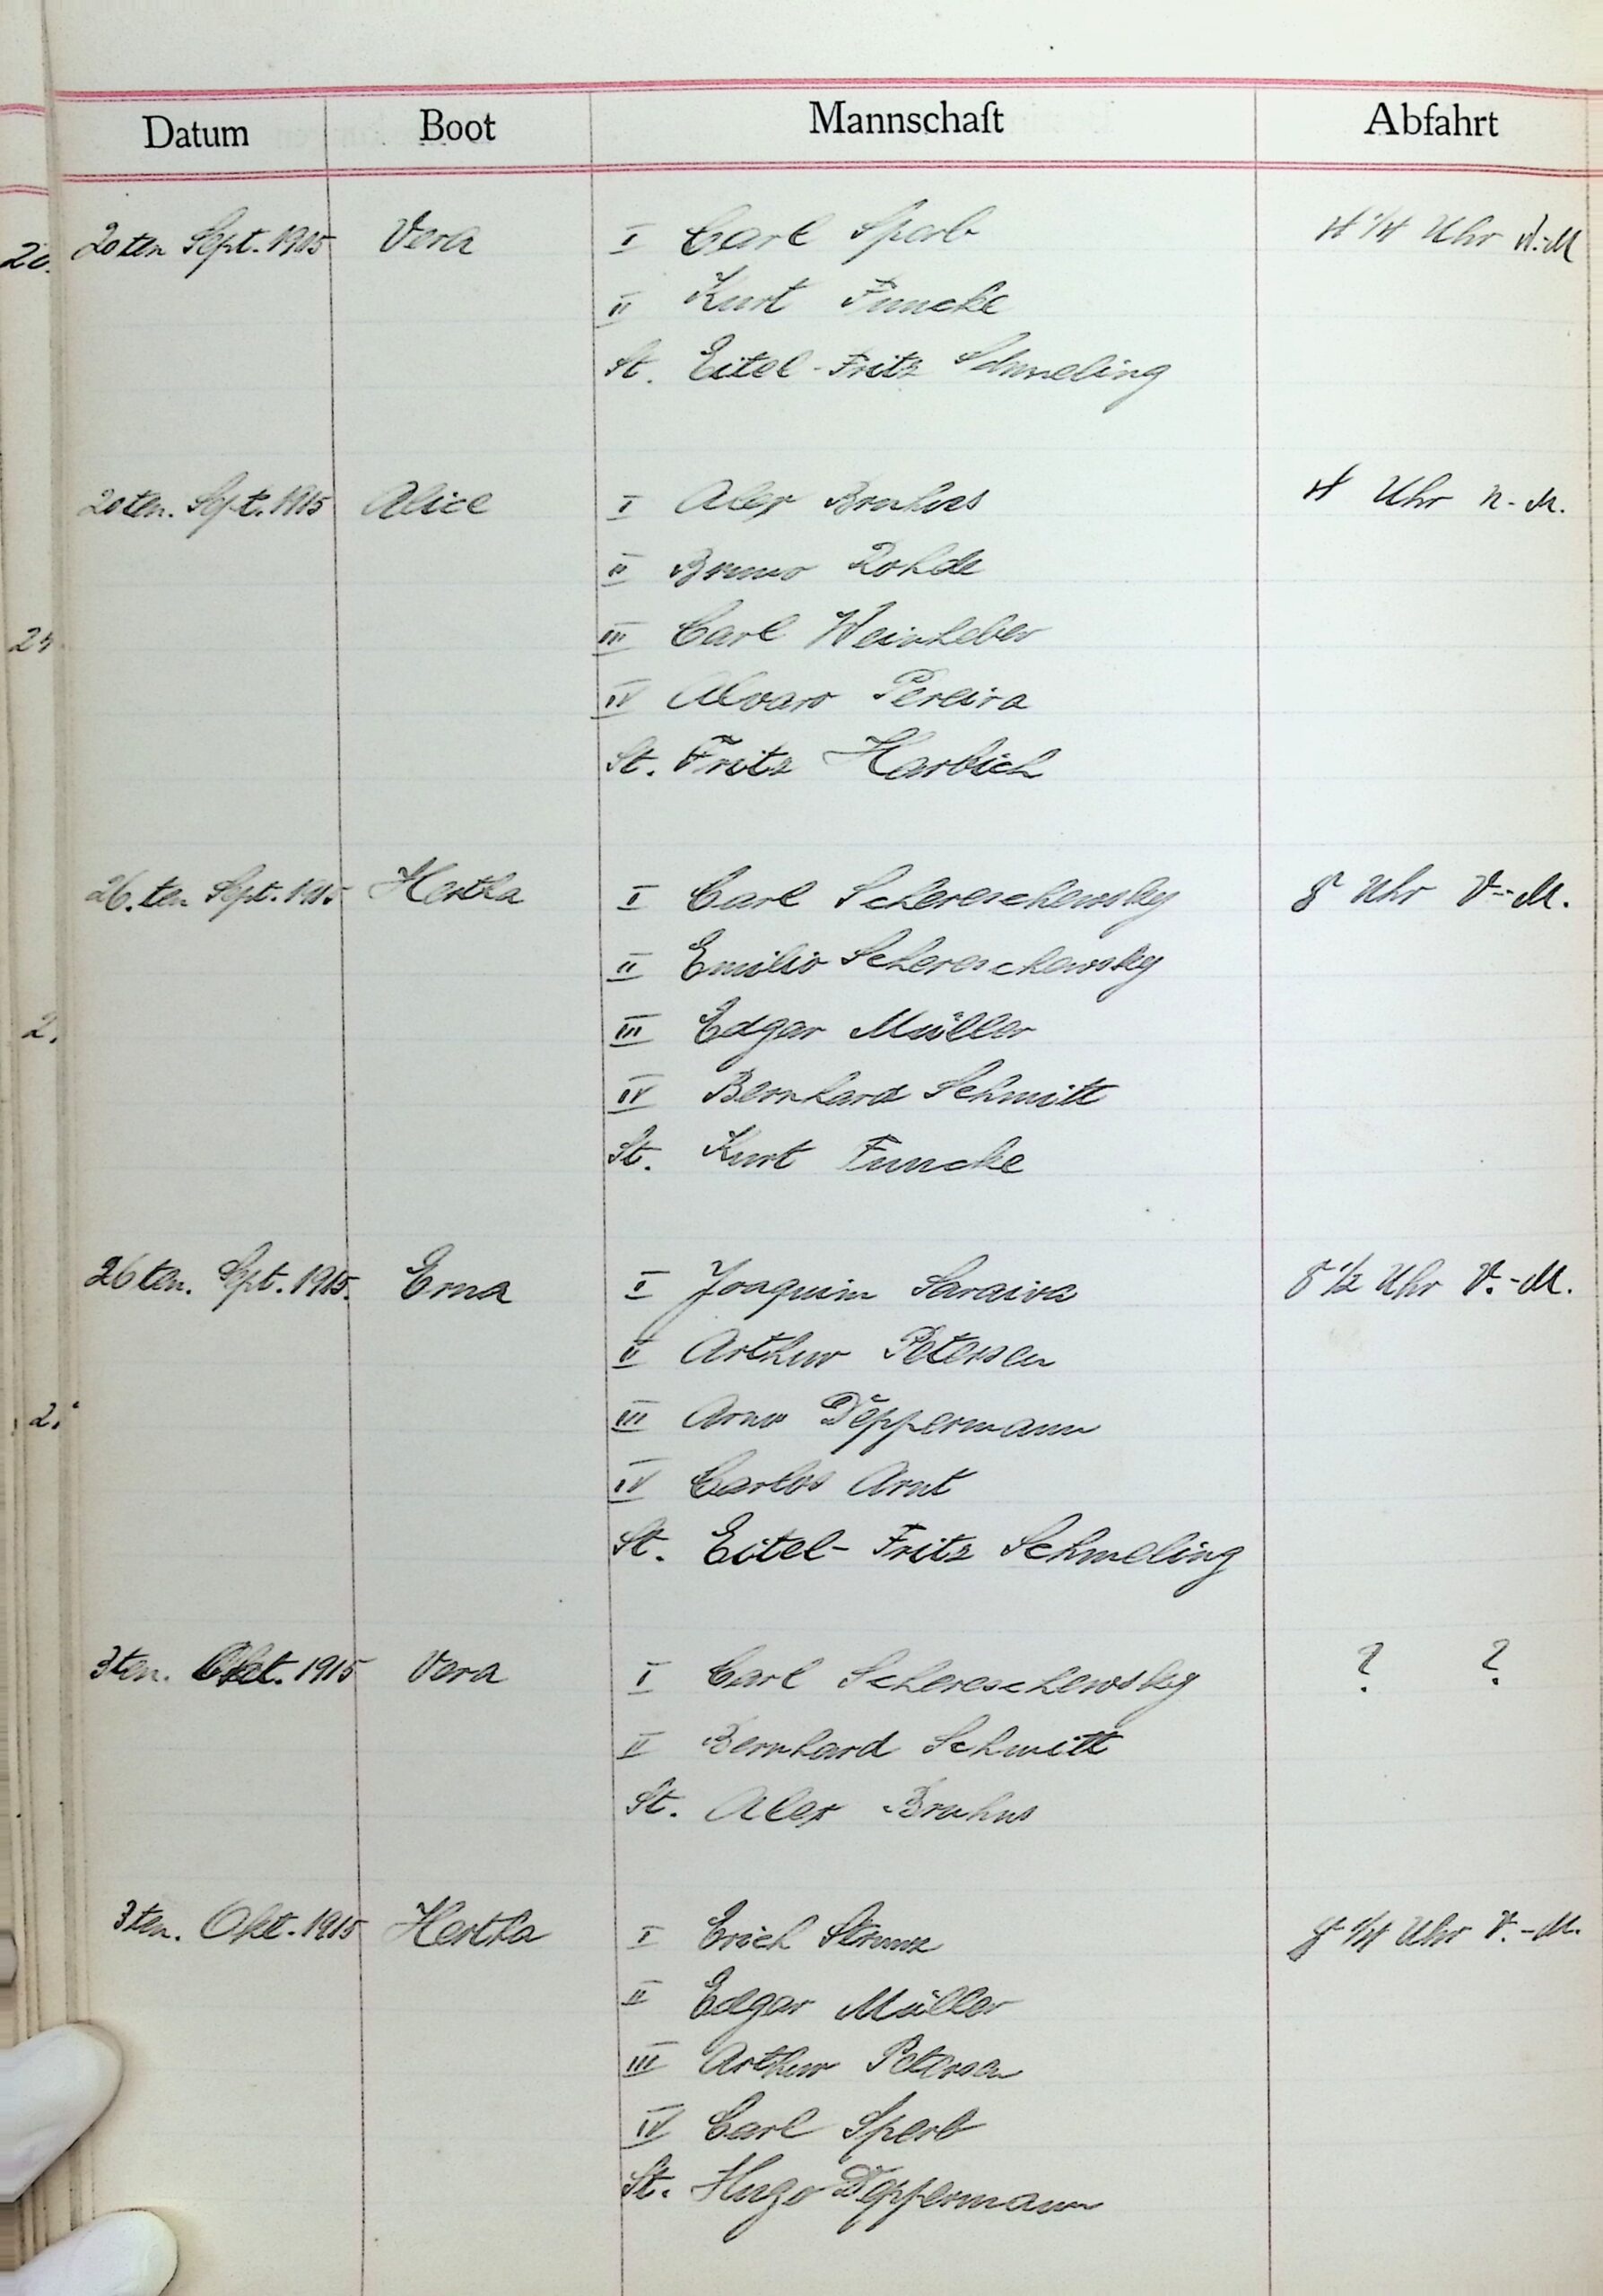 Datum Boot Mannschaft Abfahrt
20ten Sept. 1915 Vera I Carl Sperb 4 1/4 Uhr N.-M
II Kurt Funcke
St. Eitel-Fritz Schmeling
20ten. Sept. 1915 Alice I Alex Bruhns 4 Uhr N.-M.
II Bruno Rohde
III Carl Weinheber
IV Alvaro Pereira
St. Fritz Harbich
26.ten Sept. 1915 Hertha I Carl Schereschewsky 8 Uhr V.-M.
II Emilio Schereschewsky
III Edgar Müller
IV Bernhard Schmitt
St. Kurt Funcke
26ten. Sept. 1915. Erna I Joaquim Saraiva 8 1/2 Uhr V.-M.
II Arthur Petersen
III Arno Deppermann
IV Carlos Arnt
St. Eitel-Fritz Schmeling
3ten. Okt. 1915 Vera I Carl Schereschewsky ? ?
II Bernhard Schmitt
St. Alex Bruhns
3ten. Okt. 1915 Hertha I Erich 8 1/4 Uhr V.-M.
II Edgar Müller
III Arthur Petersen
IV Carl Sperb
St. Hugo Deppermann